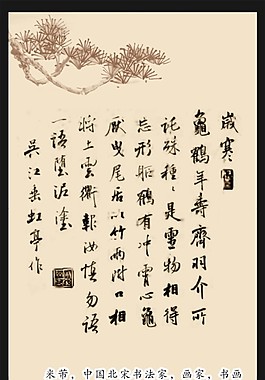 歲寒
龜鶴年壽齊羽介所
託殊種〻是靈物相得
忘形軀鶴有冲霄心龜
厭曳尾居以竹兩附口相
將上雲衢報汝慎勿語
一語墮泥塗
吳江垂虹亭作
米芾，中国北宋书法家，画家，书画